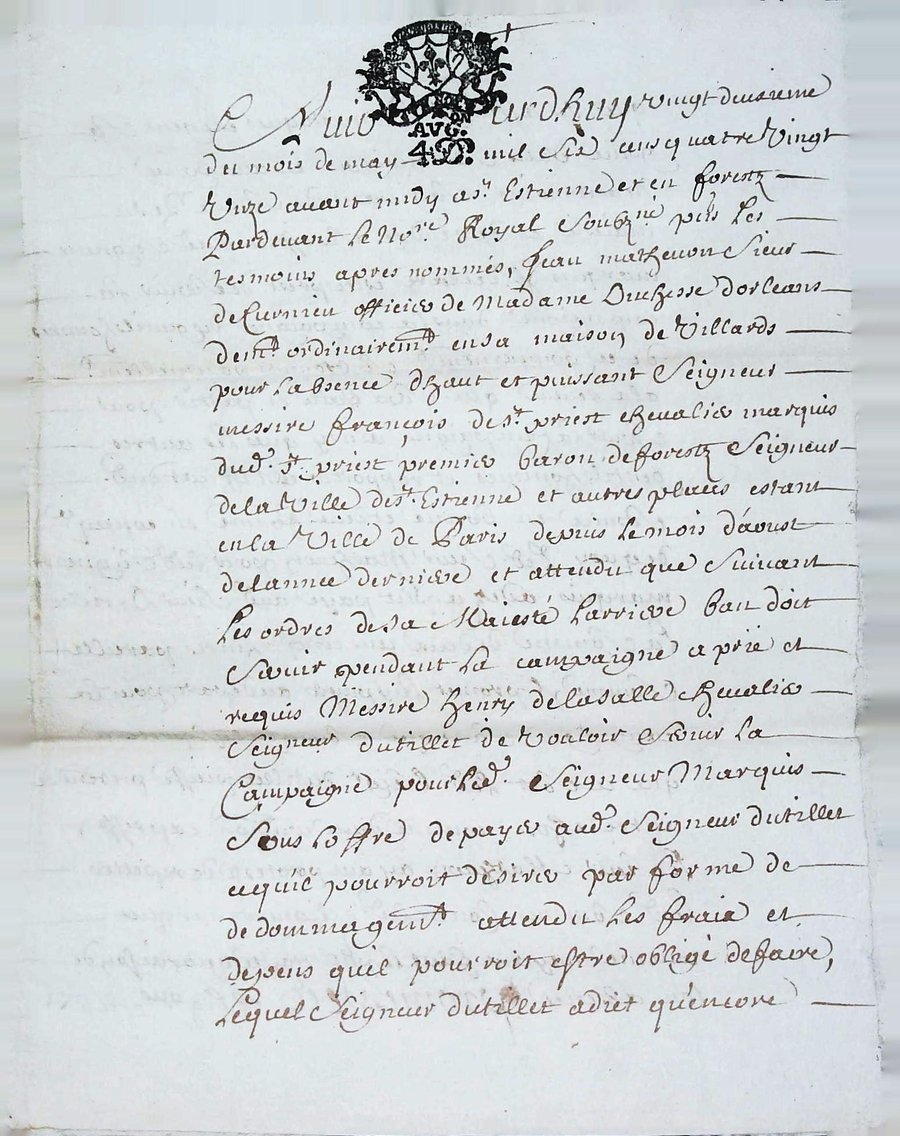 Aujourdhuy vingt deuxieme
du mois de may mil six cens quatre vingt
unze avant midy a st. Estienne et en forestz
Pardevant le nore. Royal soubzné. pnts les
tesmoins apres nommés, Jean mathevon sieur
de Curnieu officier de Madame Duchesse dorleans
demt. ordinairemt. en sa maison de Villards
pour labsence dhaut et puissant Seigneur
messire françois de st. priest chevalier marquis
dud. st. priest premier baron deforestz Seigneur
dela Ville de st. Estienne et autres places estant
enla Ville de Paris depuis lemois daoust
delannee derniere et attendu que suivant
les ordres desa Majesté larriere ban doit
servir pendant la campaigne a prié et
requis Messire henry dela salle chevalier
Seigneur dutillet de vouloir servir la
Campaigne pourled. Seigneur Marquis
sous loffre de payer aud. Seigneur dutillet
cequil pourroit desirer par forme de
dedommagemt. attendu les fraix et
depens quil pourroit estre obligé defaire,
Lequel Seigneur dutillet adict qu'encore
AVG.